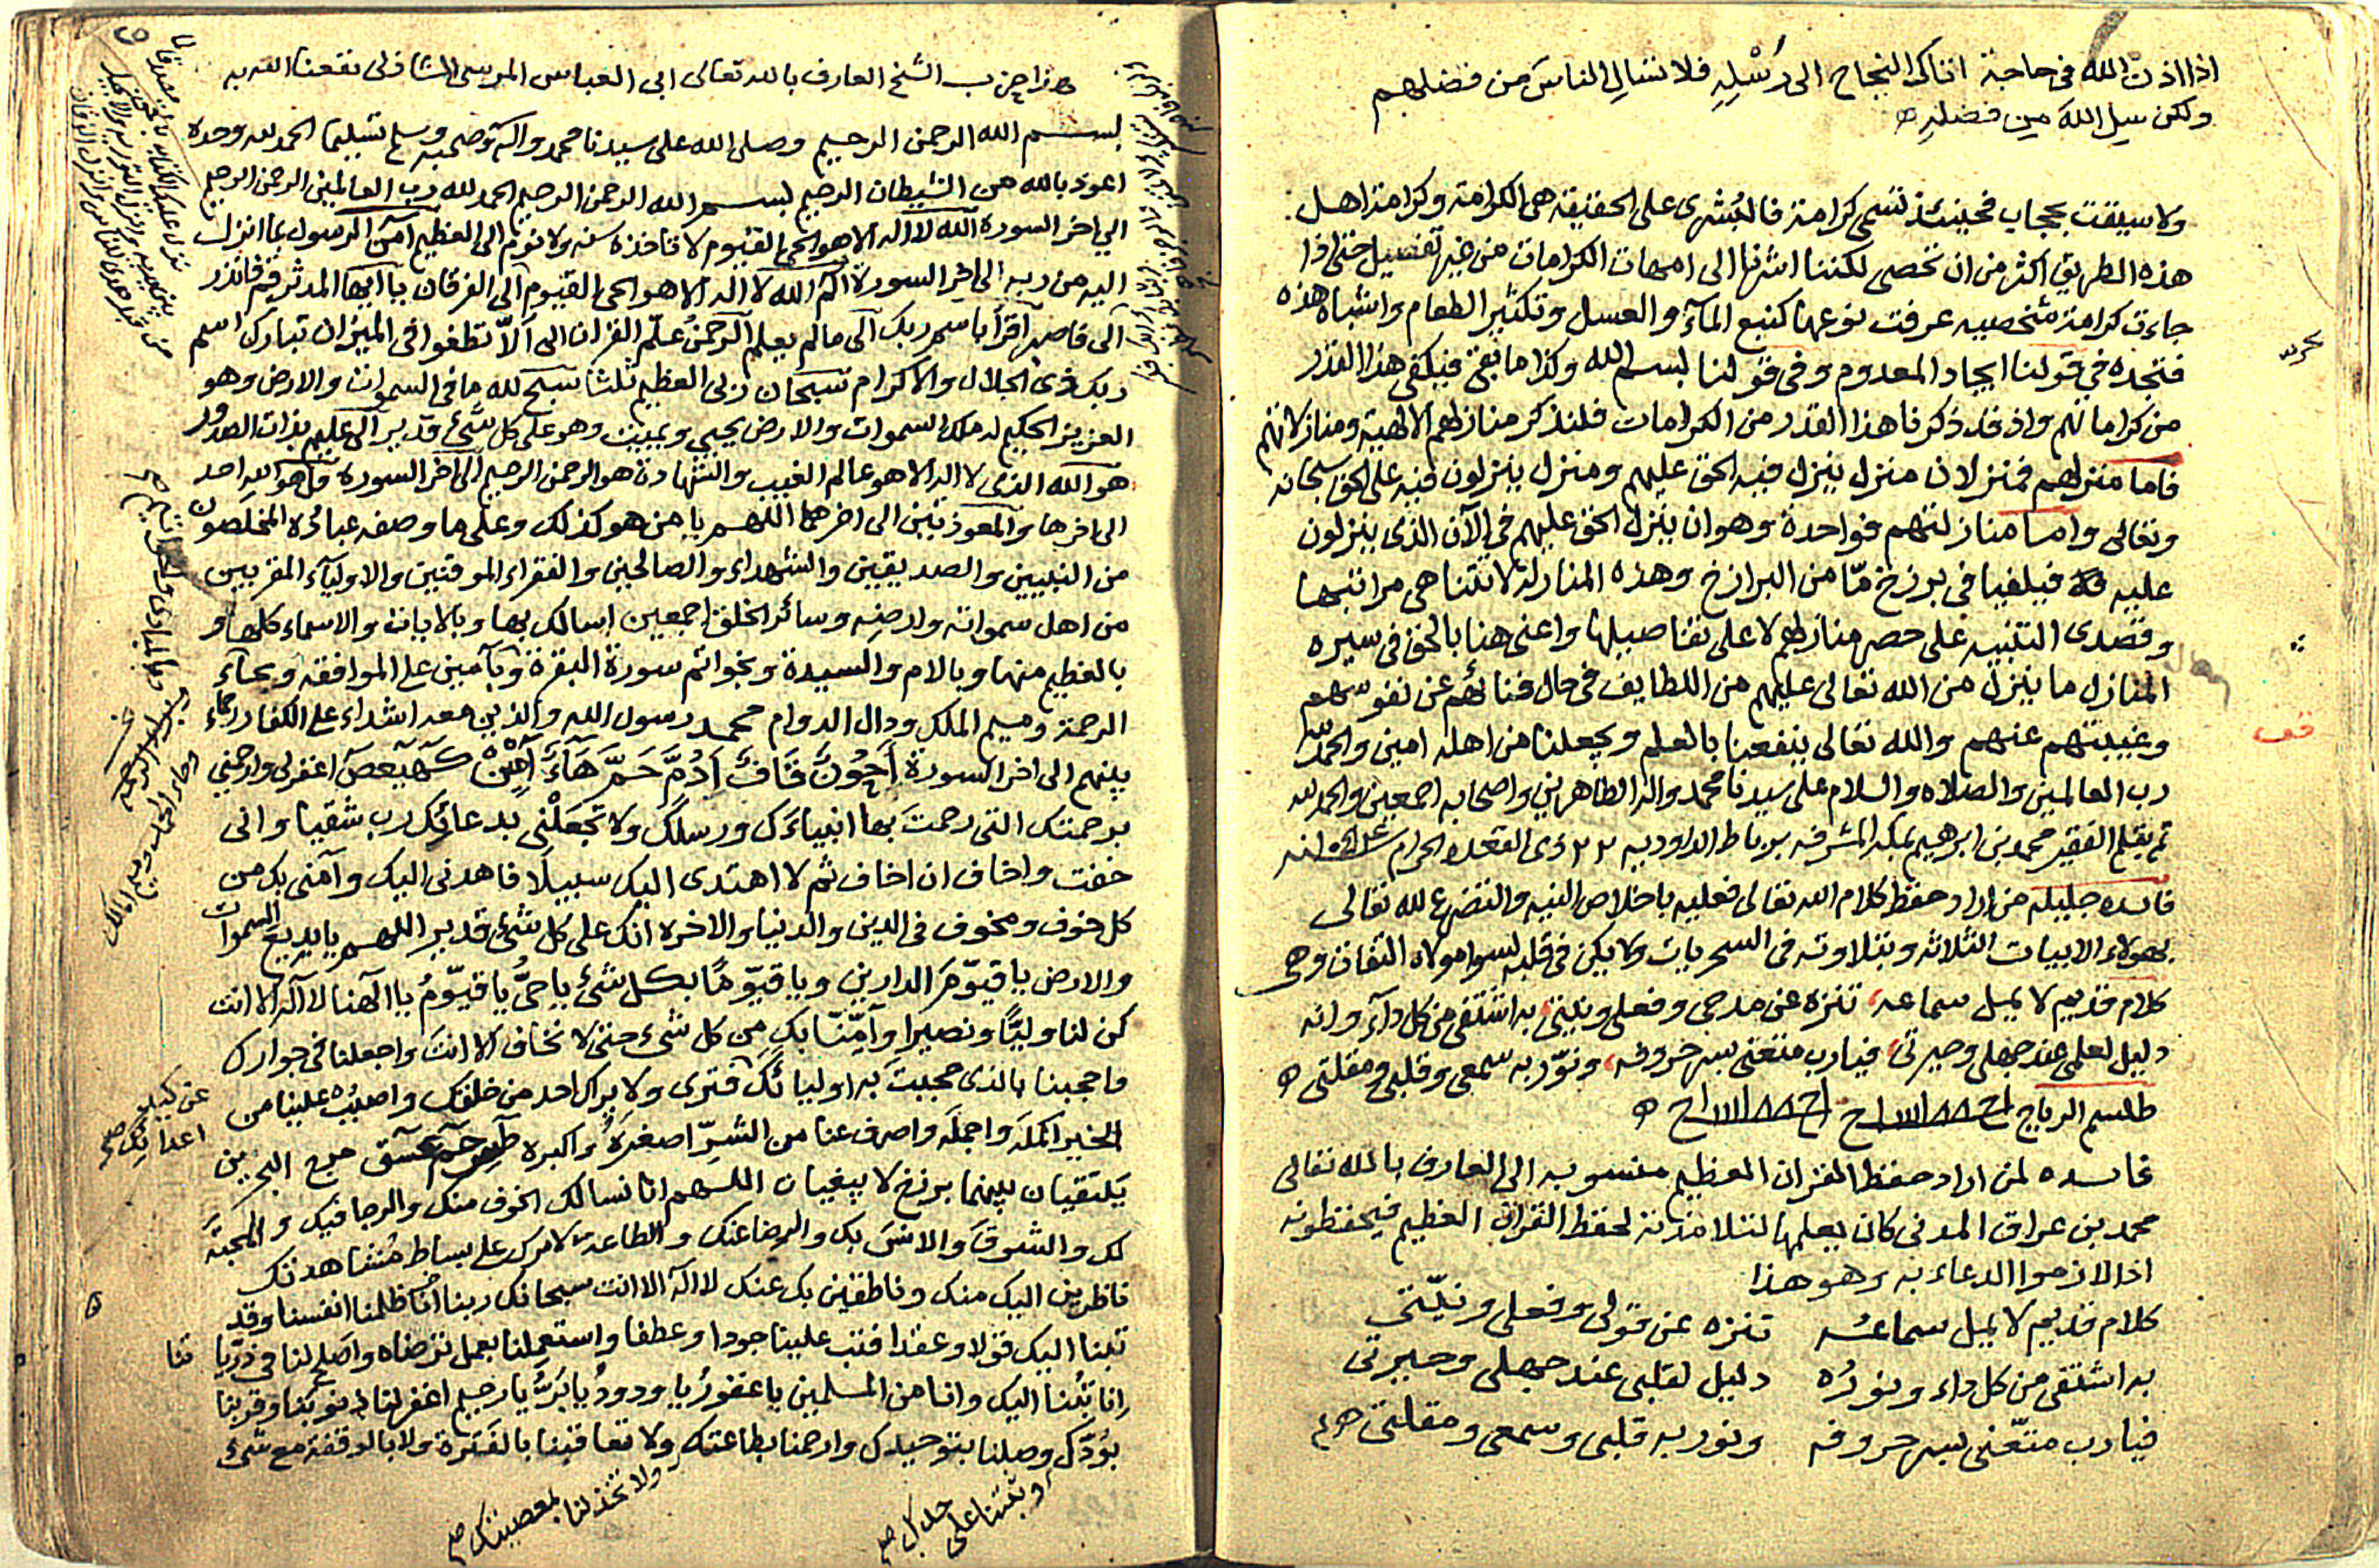 اذا اذن الله فى حاجة اتاك النجاح الى رسله فلا تسال الناس من فضلهم
ولكن سل الله من فضله
ولا سبقت بحجاب فحينئذ تسمى كرامة فالبشرى على الحقيقة هى الكرامة وكرامة اهل
هذه الطريق اكثر من ان تحصى لكننا اشرنا الى امهات الكرامات من غير تفصيل حتى اذا
جاءت كرامة شخصيه عرفت نوعها كنبع المآء والعسل وتكثير الطعام واشباه هذه
فتجده فى قولنا ايجاد المعدوم وفى قولنا بسم الله وكذا ما بقى فيكفى هذا القدر
من كراماتهم واذ قد ذكرنا هذا القدر من الكرامات فلنذكر منازلهم الالهية ومنازلاتهم
فاما منزلهم فمنزلان منزل ينزل فيه الحق عليهم ومنزل ينزلون فيه على الحق سبحانه
وتعالى واما منازلتهم فواحدة وهو ان ينزل الحق عليهم فى الآن الذى ينزلون
عليه فيلقيا فى برزخ مّا من البرازخ وهذه المنازلة لا تتناهى مراتبها
وقصدى التنبيه على حصر منازلهم لا على تفاصيلها واعنى هنا بالحق فى سيره
المنازل ما ينزل من الله تعالى عليهم من اللطايف فى حال فنائهم عن نفوسهم
وغيبتهم عنهم والله تعالى ينفعنا بالعلم ويجعلنا من اهله امين والحمد لله
رب العالمين والصلاه والسلام على سيدنا محمد واله الطاهرين واصحابه اجمعين والحمد لله
تم بقلم الفقير محمد بن ابرهيم بمكة المشرفه برباط الداوديه ٢٢ ذى القعده الحرام
فائده جليله من اراد حفظ كلام الله تعالى فعليه باخلاص النيه والتضرع لله تعالى
بهؤلاء الابيات الثلاثه وبتلاوته فى السحريات ولا يكن فى قلبه لسوا مولاه التفات وهى
كلام قديم لا يمل سماعه تنزه عن مدحى وفعلى ونيتى به اشتفى من كل دآء وانه
دليل لعلمى عند جهلى وحيرتى فيارب متعنى بسر حروفه ونوّر به سمعى وقلبى ومقلتى
طلسم الرياح
فائده لمن اراد حفظ القران العظيم منسوبه الى العارف بالله تعالى
محمد بن عراق المدنى كان يعلمها لتلامذته لحفظ القران العظيم فيحفظونه
اذا لازموا الدعاء به وهو هذا
كلام قديم لا يمل سماعه تنزه عن قولى وفعلى ونيّتى
به اشتفى من كل داء ونوره دليل لقلبى عند جهلى وحيرتى
فيارب متّعنى بسر حروفه ونور به قلبى وسمعى ومقلتى
هذا حزب الشيخ العارف بالله تعالى ابى العباس المرسى الشاذلى نفعنا الله به
بسم الله الرحمن الرحيم وصلى الله على سيدنا محمد وآله وصحبه وسلم تسليما الحمد لله وحده
اعوذ بالله من الشيطان الرجيم بسم الله الرحمن الرحيم الحمد لله رب العالمين الرحمن الرحيم
الى اخر السورة الله لا اله الا هو الحى القيوم لا تاخذه سنه ولا نوم الى العظيم آمن الرسول بما انزل
اليه من ربه الى اخر السورة الم الله لا اله الا هو الحى القيوم الى الفرقان يا ايها المدثر قم فانذر
الى فاصبر اقرأ باسم ربك الى مالم يعلم الرحمن علّم القران الى الّا تطغوا فى الميزان تبارك اسم
ربك ذى الجلال والاكرام سبحان ربى العظيم ثلثا سبح لله ما فى السموات والارض وهو
العزيز الحكيم له ملك السموات والارض يحيى ويميت وهو على كل شئ قدير الى عليم بذات الصدور
هو الله الذى لا اله الا هو عالم الغيب والشهادة هو الرحمن الرحيم الى اخر السورة قل هو الله احد
الى اخرها والمعوذتين الى اخرهما اللهم يا من هو كذلك وعلى ما وصفه عباده المخلصون
من النبيين والصديقين والشهداء والصالحين والفقراء الموقنين والاوليآء المقربين
من اهل سمواته وارضه وسائر الخلق اجمعين اسالك بها وبالايات والاسماء كلها و
بالعظيم منها وبالام والسيدة وبخواتم سورة البقرة وبآمين على الموافقه وبحآء
الرحمة وميم الملك ودال الدوام محمد رسول الله والذين معه اشداء على الكفار رحماء
بينهم الى اخر السورة احون قاف ادم حم هاء آمين كهيعص اغفر لى وارحمنى
برحمتك التى رحمت بها انبياءك ورسلك ولا تجعلنى بدعائك رب شقيا وانى
خفت واخاف ان اخاف ثم لا اهتدى اليك سبيلا فاهدنى اليك وآمنى بك من
كل خوف ومخوف فى الدين والدنيا والاخره انك على كل شئ قدير اللهم يا بديع السموات
والارض يا قيّوم الدارين ويا قيّوما بكل شئ يا حىّ يا قيّوم يا الهنا لا اله الا انت
كن لنا وليّا ونصيرا وآمِنّا بك من كل شئ حتى لا نخاف الا انت واجعلنا فى جوارك
واحجبنا بالذى حجبت به اوليائك فترى ولا يراك احد من خلقك واصبب علينا من
الخير اكمله واجمله واصرف عنا من الشرّ اصغره واكبره طس حم عسق مرج البحرين
يلتقيان بينهما برزخ لا يبغيان اللهم انا نسالك الخوف منك والرجا فيك والمحبّة
لك والشوق والانس بك والرضا عنك والطاعة لامرك على بساط مشاهدتك
ناظرين اليك منك وناطقين بك عنك لا اله الا انت سبحانك ربنا انا ظلمنا انفسنا وقد
تبنا اليك قولا وعقدا فتب علينا جودا وعطفا واستعملنا بعمل ترضاه واصلح لنا فى ذرّيا تنا
انا تبنا اليك وانا من المسلمين يا غفور يا ودود يا برّ يا رحيم اغفر لنا ذنوبنا وقربنا
بودّك وصلنا بتوحيدك وارحمنا بطاعتك ولا تعاقبنا بالفترة ولا بالوقفة مع شئ
عن كيد
اعدائك صح
ولا تخذلنا بمعصيتك صح